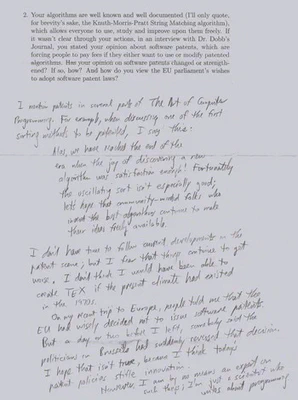 2. Your algorithms are well known and well documented (I'll only quote,
for brevity's sake, the Knuth-Morris-Pratt String Matching algorithm),
which allows everyone to use, study and improve upon them freely. If
it wasn't clear through your actions, in an interview with Dr. Dobb's
Journal, you stated your opinion about software patents, which are
forcing people to pay fees if they either want to use or modify patented
algorithms. Has your opinion on software patents changed or strength-
ened? If so, how? And how do you view the EU parliament's wishes
to adopt software patent laws?
I mention patents in several parts of The Art of Computer
Programming. For example, when discussing one of the first
sorting methods to be patented, I say this:
Alas, we have reached the end of the
era when the joy of discovering a new
algorithm was satisfaction enough! Fortunately
the oscillating sort isn't especially good;
let's hope that community-minded folks who
invent the best algorithms continue to make
their ideas freely available.
I don't have time to follow current developments in the
patent scene, but I fear that things continue to get
worse. I don't think I would have been able to
create TEX if the present climate had existed
in the 1970s.
On my recent trip to Europe, people told me that the
EU had wisely decided not to issue software patents.
But a day or two before I left, somebody said the
politicians in Brussels had suddenly reversed that decision.
I hope that isn't true, because I think today's
patent policies stifle innovation.
However, I am by no means an expert on
such things; I'm just a scientist who
writes about programming